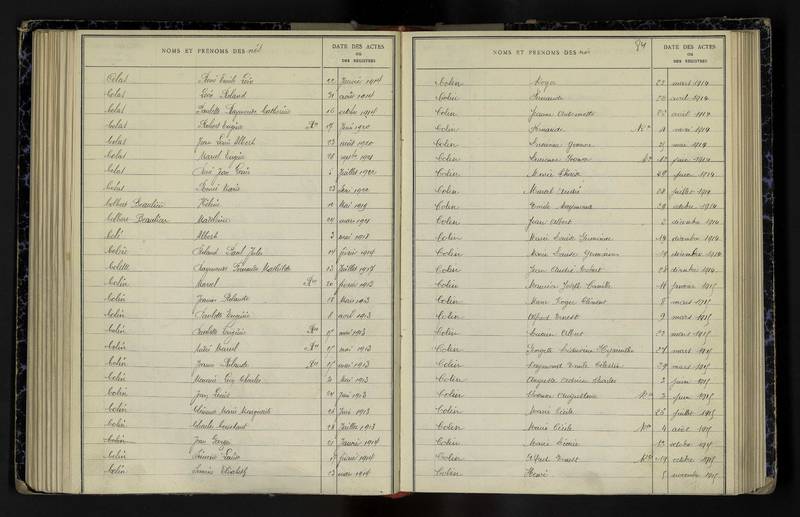 NOMS ET PRÉNOMS DES nés
DATE DES ACTES
OU
DES REGISTRES
Colas René Emile Léon 22 Janvier 1914
Colas Léon Roland 31 août 1914
Colas Paulette Raymonde Catherine 16 octobre 1914
Colas Robert Eugène 17 Juin 1920
Colas Jean Louis Albert 23 août 1920
Colas Marcel Eugène 28 1921
Colas René Jean Louis 5 Juillet 1922
Colas Marie 23
Colbert Beaulieu Hélène 10 Mai 1919
Colbert Beaulieu Madeleine 24 mars 1921
Albert 2 mai 1918
Roland Paul Jules 14 février 1914
Colette Raymonde Mathilde 13 Juillet 1917
Colin Marcel 20 février 1913
Colin Jeanne Rolande 18 Mars 1913
Colin Paulette Eugénie 8 avril 1913
Colin Paulette Eugénie mai 1913
Colin André Marcel mai 1913
Colin Jeanne Rolande mai 1913
Colin Maurice Guy Charles 2 Mai 1913
Colin Jean Louis 24 Juin 1913
Colin Marie Marguerite 26 Juin 1913
Colin Charles Constant 28 Juillet 1913
Colin Jean Georges 21 Janvier 1914
Colin février 1914
Colin Elisabeth 13 mars 1914
NOMS ET PRÉNOMS DES
94
DATE DES ACTES
OU
DES REGISTRES
Colin Roger 23 mars 1914
Colin Fernande 20 avril 1914
Colin Jeanne Antoinette 25 avril 1914
Colin Fernande mai 1914
Colin Suzanne Yvonne 21 mai 1914
Colin Lucienne Yvonne juin 1914
Colin Marie juin 1914
Colin Marcel André 28 juillet 1914
Colin Emile Raymond 29 octobre 1914
Colin Jean Albert 2 décembre 1914
Colin Marie Louise Germaine 14 décembre 1914
Colin Marie Louise Germaine 19 décembre 1914
Colin Jean André Robert 28 décembre 1914
Colin Maurice Joseph Camille 11 janvier 1915
Colin Marie Roger Clément 8 mars 1915
Colin Albert Ernest 9 mars 1915
Colin Lucien Albert 23 mars 1915
Colin Georgette Ludovine Hyacinthe 27 mars 1915
Colin Raymond Emile Célestin 29 mars 1915
Colin Auguste Charles 2 juin 1915
Colin Yvonne Augustine 3 juin 1915
Colin Marie Cécile 26 juillet 1915
Colin Marie Cécile 4 août 1915
Colin Marie octobre 1915
Colin Alfred Ernest 19 octobre 1915
Colin Henri 5 novembre 1915